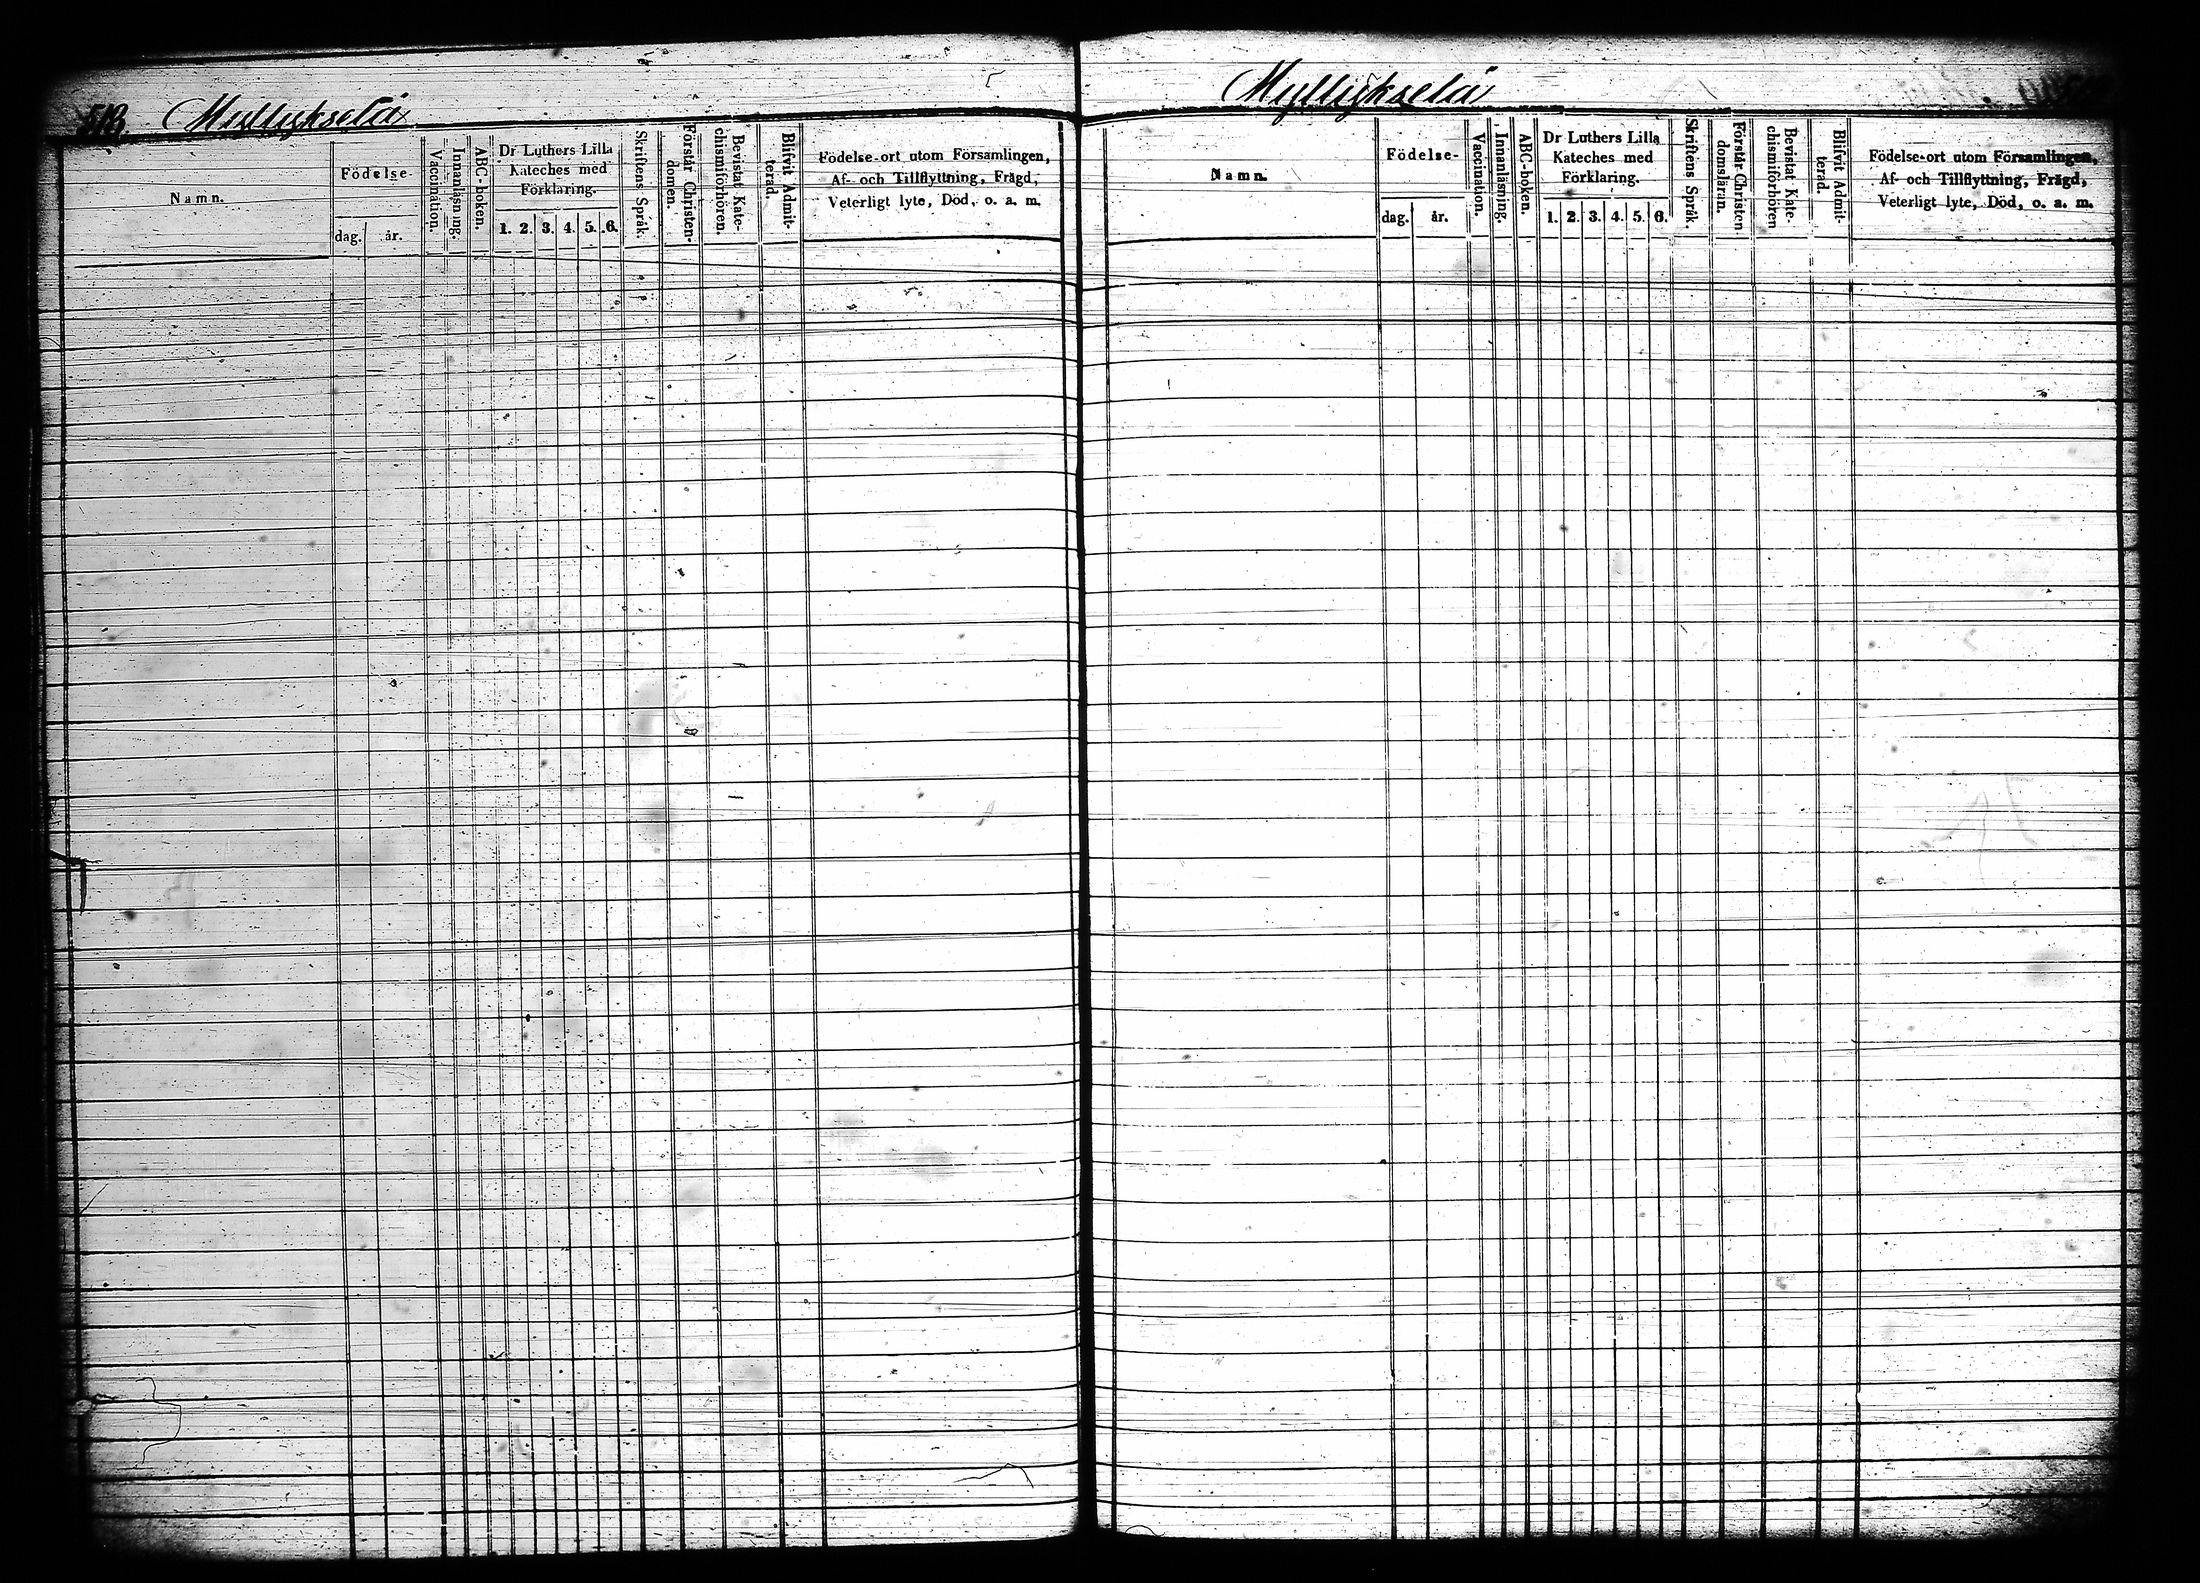 513. Myllykselä
Namn.
Födelse-
dag. år.
Vaccination.
Innanläsning.
ABC-boken.
Dr Luthers Lilla
Kateches med
Förklaring.
1. 2. 3. 4. 5. 6.
Skriftens Språk.
Förstår Christen-
domen.
Bevistat Kate-
chismiförhören.
Blifvit Admit-
terad.
Födelse-ort utom Församlingen,
Af- och Tillflyttning, Frägd,
Veterligt lyte, Död, o. a. m.
Myllykselä
Namn.
Födelse-
dag. år.
Vaccination.
Innanläsning.
ABC-boken.
Dr Luthers Lilla
Kateches med
Förklaring.
1. 2. 3. 4. 5. 6.
Skriftens Språk.
Förstår Christen-
domsläran.
Bevistat Kate-
chismiförhören
Blifvit Admit-
terad.
Födelse-ort utom Församlingen,
Af- och Tillflyttning, Frägd,
Veterligt lyte, Död, o. a. m.